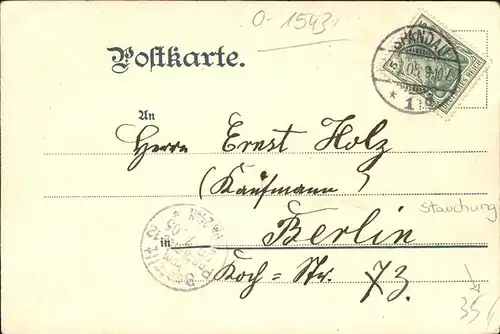 O-1543
SPANDAU
05
* 1
DEUTSCHES REICH
Postkarte.
An
Herrn Ernst Holz
(Kaufmann)
Stauchung
in Berlin
Koch-Str. 73.
35